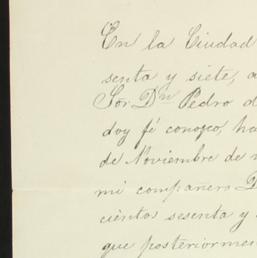 En la Ciudad
senta y siete, a
Sor. Dn Pedro d
doy fé conozco, ha
de Noviembre de
mi compañero D
cientos sesenta y
que posteriormen